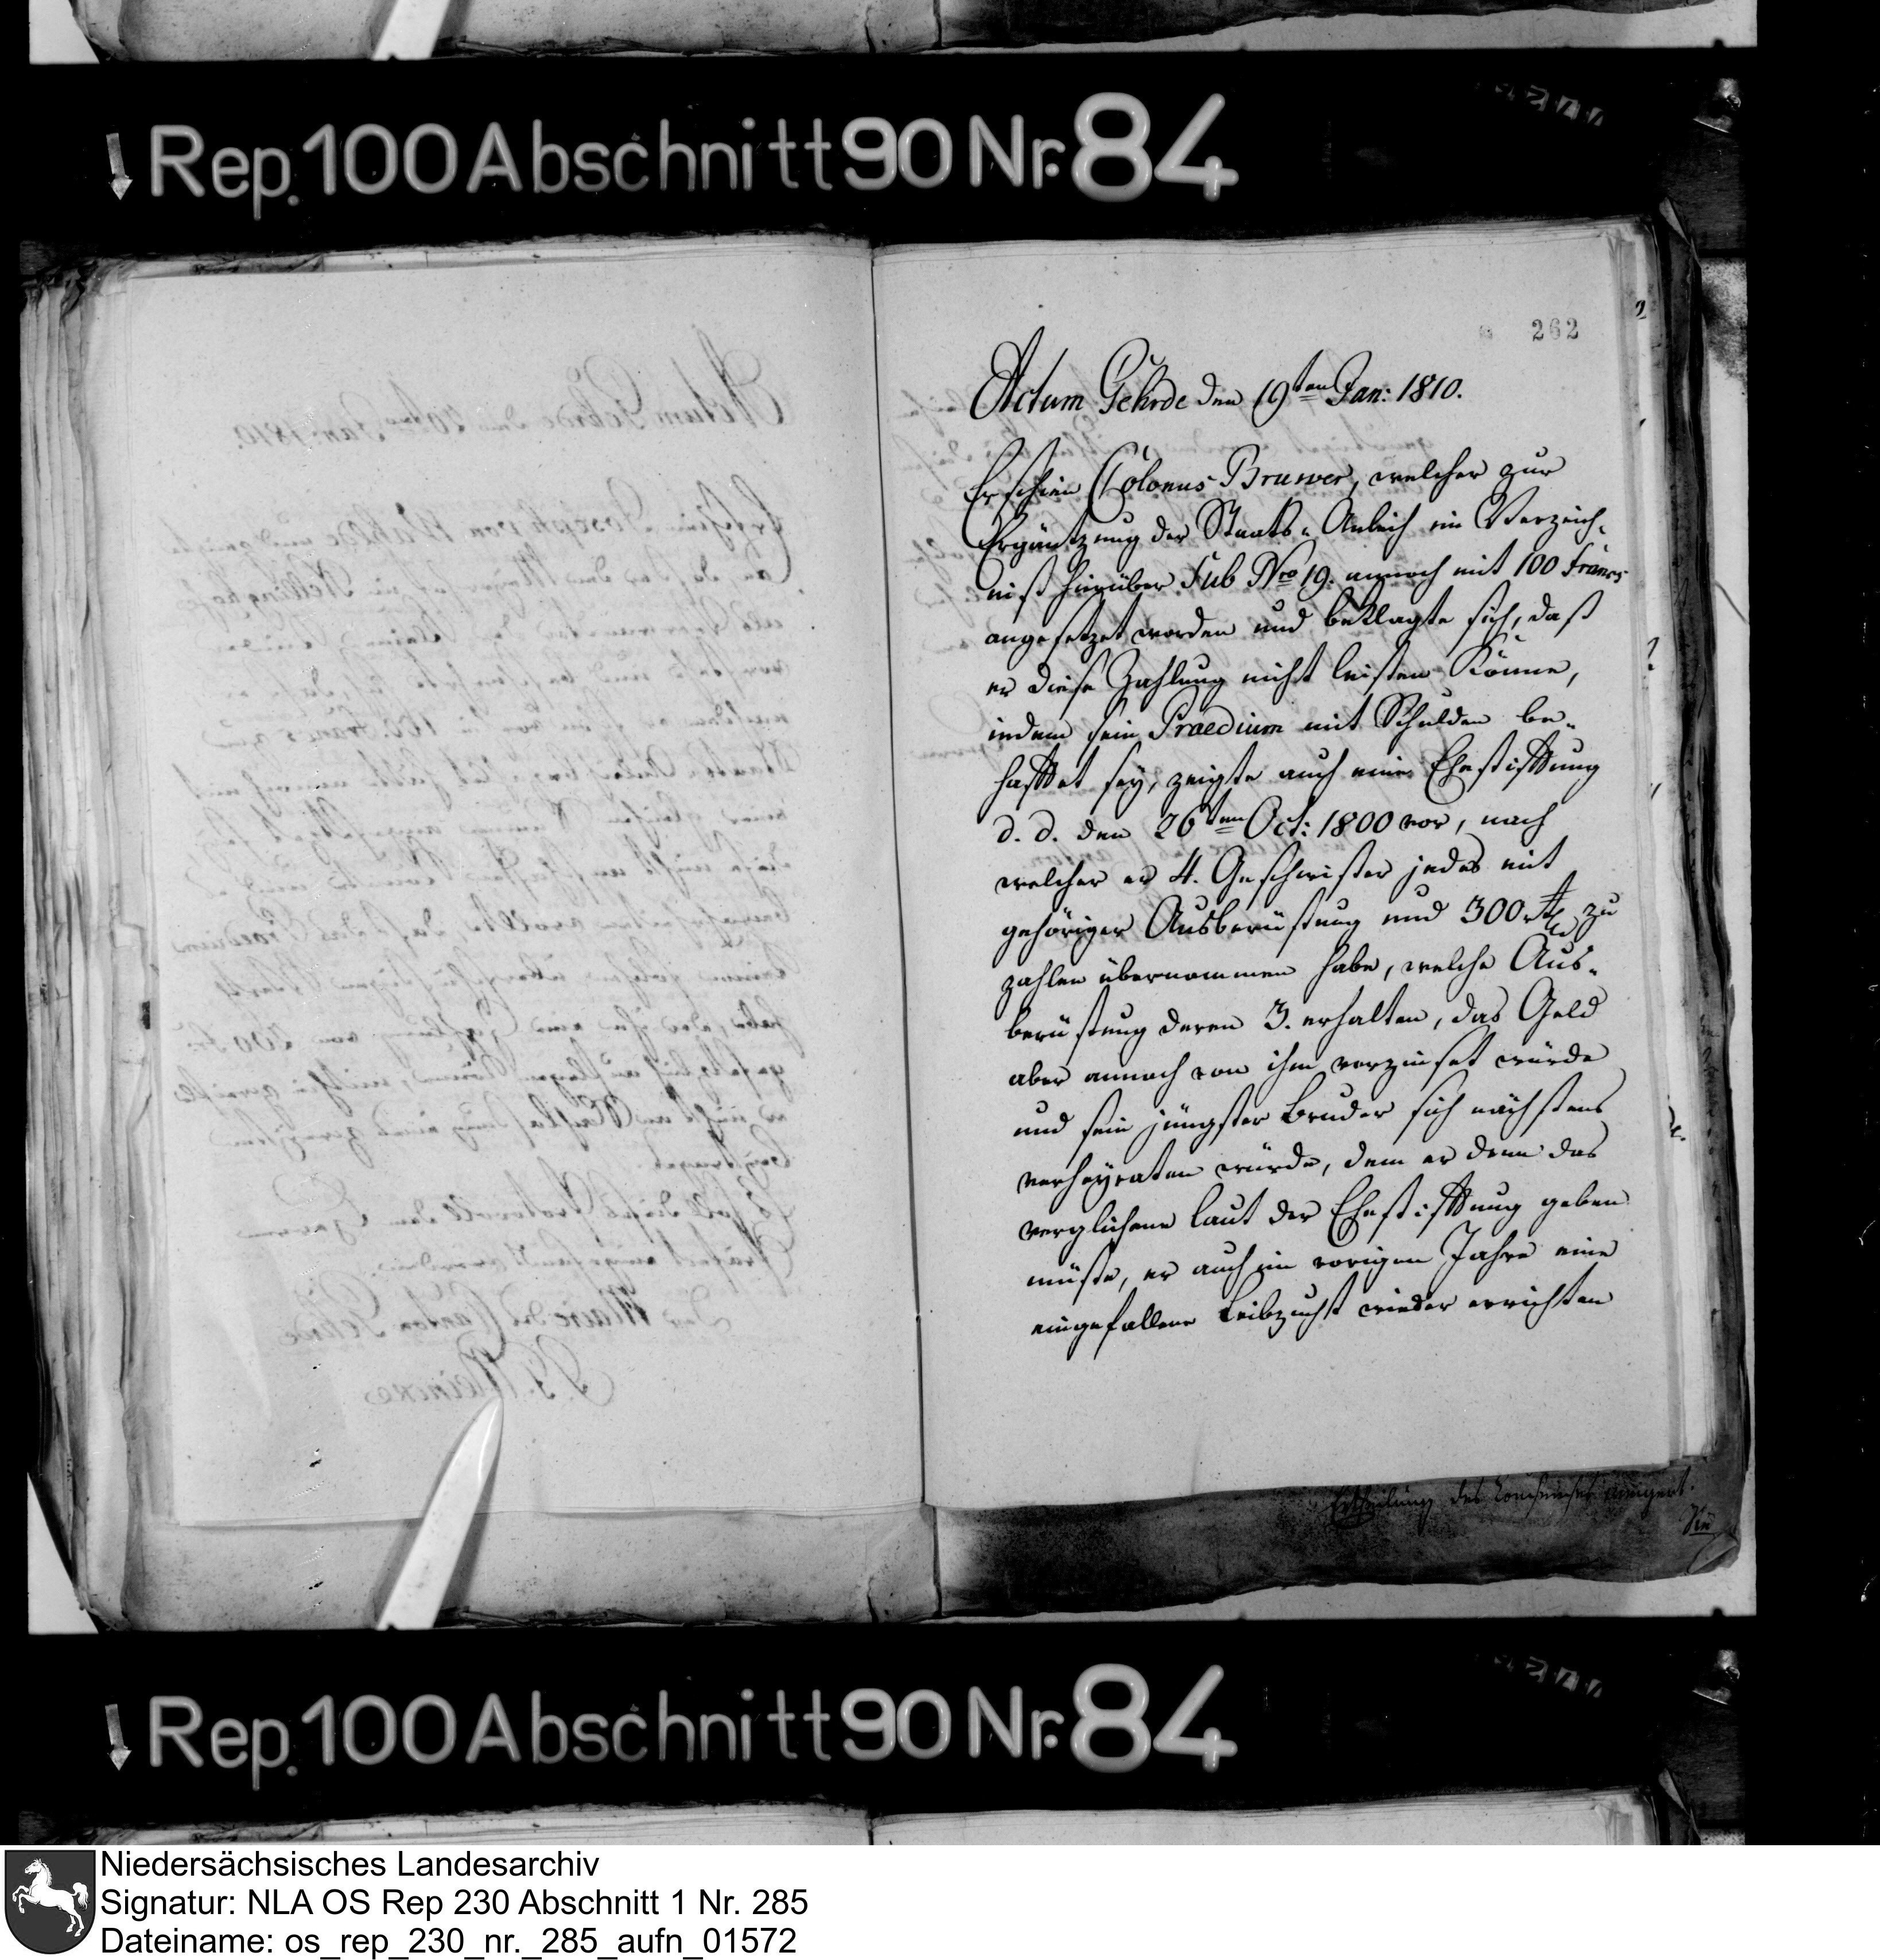 Rep. 100 Abschnitt 90 Nr. 84
262
Actum Gehrde den 19ten Jan: 1810.
Erschien Colonus Bruwer, welcher zur
Ergäntzung der Staats-Anleih im Verzeich-
niß hierüber sub Nro 19. annoch mit 100 Francs
angesetzet worden und beklagte sich, daß
er diese Zahlung nicht leisten könne,
indem sein Praedium mit Schulden be-
hafftet sey, zeigte auch eine Ehestifftung
d. d. den 26ten Oct: 1800 vor, nach
welcher er 4. Geschwister jedes mit
gehöriger Ausberüstung und 300 rtl zu
zahlen übernommen habe, welche Aus-
berüstung deren 3. erhalten, das Geld
aber annoch von ihm verzinset würde
und sein jüngster Bruder sich nächstens
verheyraten würde, dem er denn das
verglichene laut der Ehestifftung geben
müste, er auch im vorigen Jahre eine
eingefallene Leibzucht wieder errichten
Ertheilung des Consenses
Rep. 100 Abschnitt 90 Nr. 84
Niedersächsisches Landesarchiv
Signatur: NLA OS Rep 230 Abschnitt 1 Nr. 285
Dateiname: os_rep_230_nr._285_aufn_01572